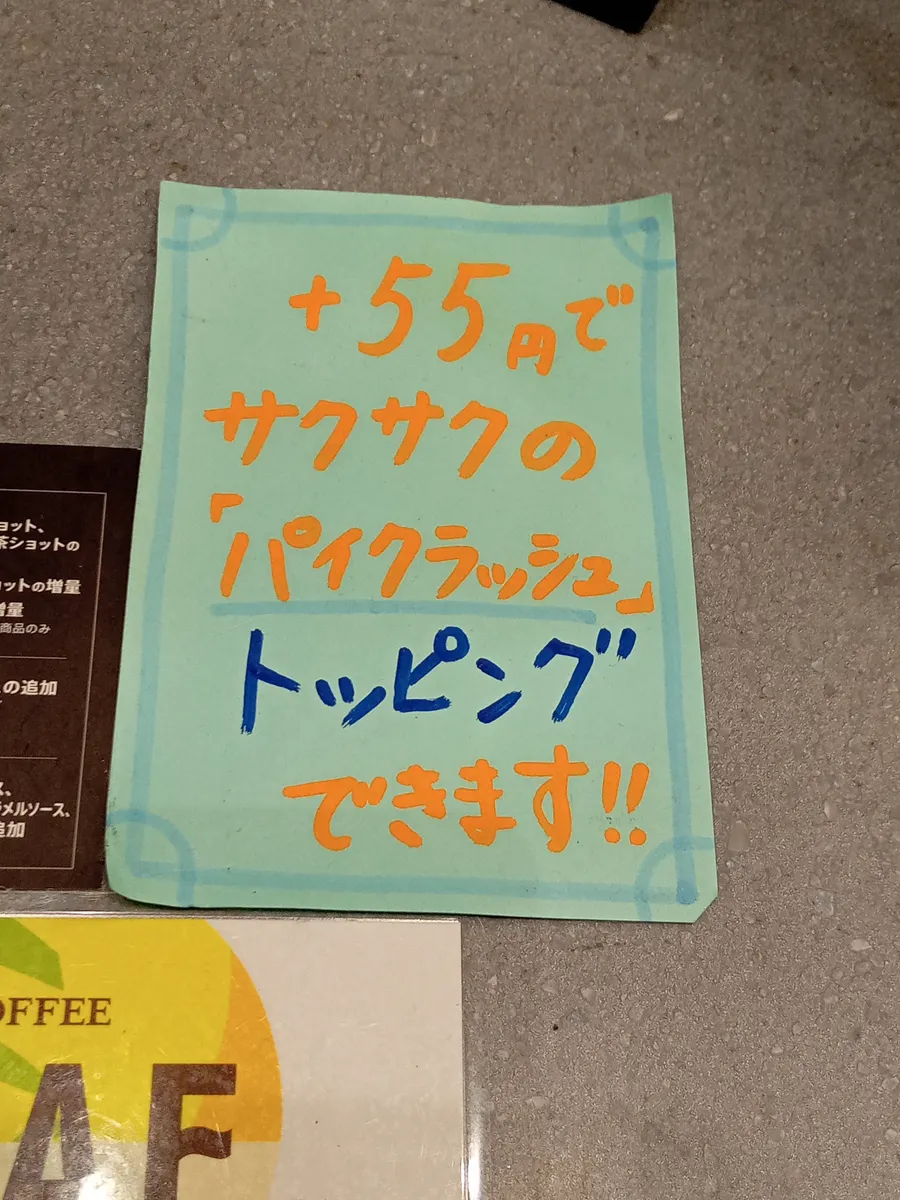 +55円で
サクサクの
「パイクラッシュ」
トッピング
できます!!
ョット、
茶ショットの
ョットの増量
増量
商品のみ
の追加
ス、
ラメルソース、
追加
OFFEE
AF